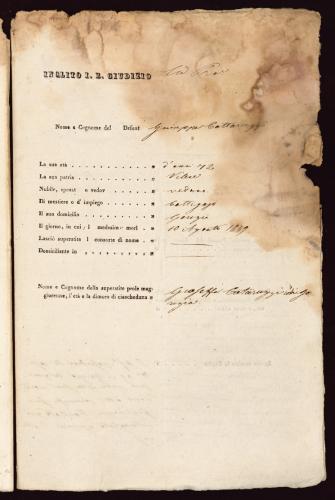 INCLITO I. R. GIUDIZIO
Nome e Cognome del Defont Giuseppe
La sua età „ d'anni 72
La sua patria „
Nubile, sposat o vedov „ vedovo
Di mestiere o d'impiego „ bottegajo
Il suo domicilio „ Gorizia
Il giorno, in cui l medesim morì „ 10 Agosto 1849
Lasciò superstite l consorte di nome „
Domiciliante in „
Nome e Cognome della superstite prole mag-
giorenne, l'età e la dimora di ciascheduna „ Giuseffa di Go
rizia